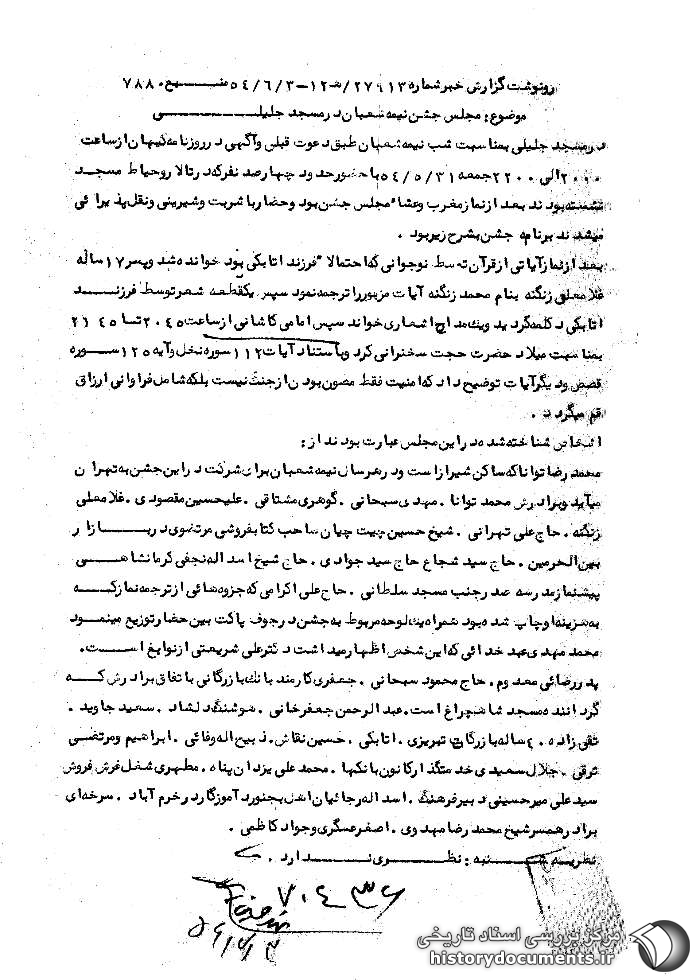 رونوشت گزارش خبر شماره ۲۷۹۱۳/ه‍ ۱۲ – ۵۴/۶/۳ منبع ۷۸۸۰
موضوع : مجلس جشن نیمه شعبان در مسجد جلیلی
در مسجد جلیلی بمناسبت شب نیمه شعبان طبق دعوت قبلی و آگهی در روزنامه کیهان از ساعت
۲۰۰۰ الی ۲۲۰۰ جمعه ۵۴/۵/۳۱ با حضور حدود چهارصد نفر که در تالار و حیاط مسجد
نشسته بودند بعد از نماز مغرب و عشاء مجلس جشن بود و حضار با شربت و شیرینی و نقل پذیرائی
میشدند برنامه جشن بشرح زیر بود .
بعد از نماز آیاتی از قرآن توسط نوجوانی که احتمالا" فرزند اتابکی بود خوانده شد و پسر ۱۷ ساله
غلامعلی زنگنه بنام محمد زنگنه آیات مزبور را ترجمه نمود سپس یکقطعه شعر توسط فرزند
اتابکی دکلمه گردید و یک مداح اشعاری خواند سپس امامی کاشانی از ساعت ۲۰۴۵ تا ۲۱۴۵
بمناسبت میلاد حضرت حجت سخنرانی کرد و باستناد آیات ۱۱۲ سوره نحل و آیه ۱۲۵ سوره
قصص و دیگر آیات توضیح داد که امنیت فقط مصون بودن از جنگ نیست بلکه شامل فراوانی ارزاق
هم میگردد .
اشخاص شناخته شده در این مجلس عبارت بودند از :
محمد رضا توانا که ساکن شیراز است و در هر سال نیمه شعبان برای شرکت در این جشن به تهران
میآید و برادرش محمد توانا . مهدی سبحانی . گوهری مشتاقی . علیحسین مقصودی . غلامعلی
زنگنه . حاج علی تهرانی . شیخ حسین چیت چیان صاحب کتابفروشی مرتضوی در بازار
بین الحرمین . حاج سید شجاع حاج سید جوادی . حاج شیخ اسداله نجفی کرمانشاهی
پیشنماز مدرسه صدر جنب مسجد سلطانی . حاج علی اکرامی که جزوه هائی از ترجمه نماز که
به هزینه او چاپ شده بود همراه یک لوحه مربوط به جشن در جوف پاکت بین حضار توزیع مینمود
محمد مهدی عبد خدائی که این شخص اظهار میداشت دکتر علی شریعتی از نوابغ است .
پدر رضائی معدوم . حاج محمود سبحانی . جعفری کارمند بانک بازرگانی باتفاق برادرش که
گرداننده مسجد شاهچراغ است . عبد الرحمن جعفرخانی . هوشنگ دلشاد . سعید جاوید .
تقی زاده ۴۰ ساله بازرگان تبریزی . اتابکی . حسین نقاش . ذبیح اله وفائی . ابراهیم و مرتضی
شرقی . جلال سعیدی خدمتگذار کانون بانکها . محمد علی یزدان پناه . مطهری شغل فرش فروش
سید علی میرحسینی دبیر فرهنگ . اسداله رجائیان اهل بجنورد آموزگار در خرم آباد . سرخه ای
برادر همسر شیخ محمد رضا مهدوی . اصغر عسگری و جواد کاظمی .
نظریه شنبه : نظری ندارد .
۷۰۴۳۶
مرکز بررسی اسناد تاریخی
historydocuments.ir